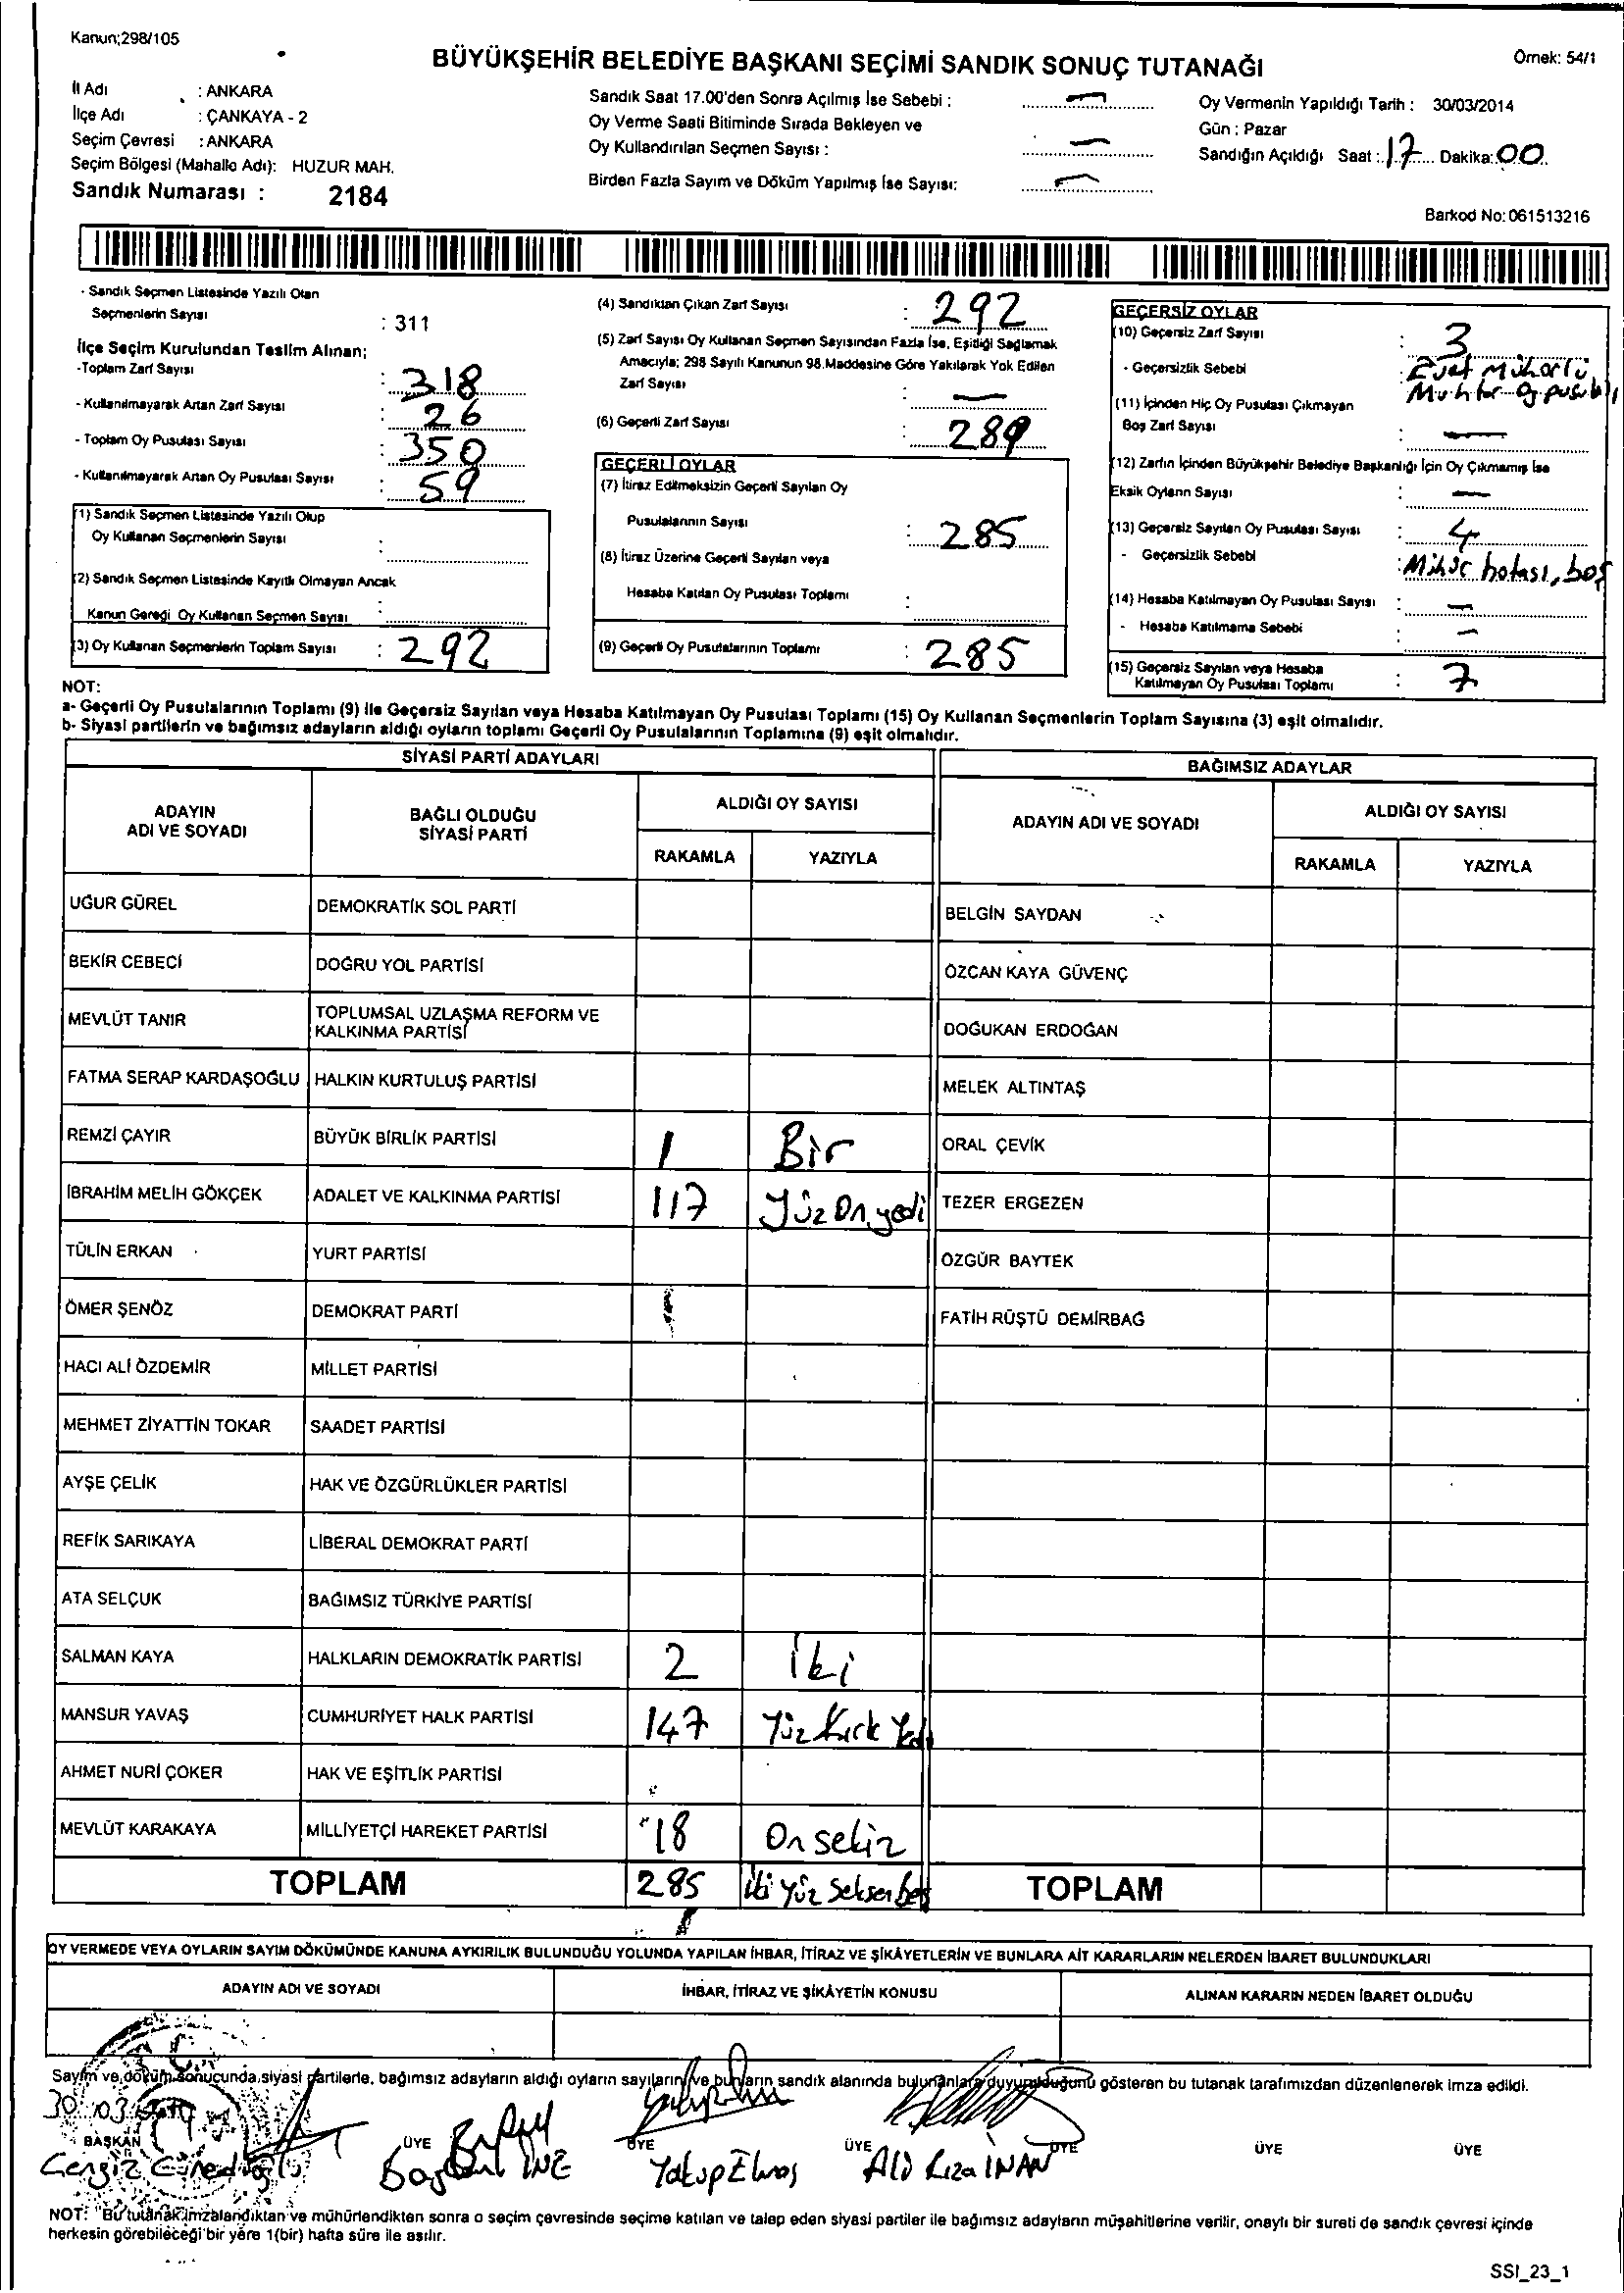 Kanun;298/105
BÜYÜKŞEHİR BELEDİYE BAŞKANI SEÇİMİ SANDIK SONUÇ TUTANAĞI
Örnek: 54/1
İl Adı : ANKARA
İlçe Adı : ÇANKAYA - 2
Seçim Çevresi : ANKARA
Seçim Bölgesi (Mahalle Adı): HUZUR MAH.
Sandık Numarası : 2184
Sandık Saat 17.00'den Sonra Açılmış İse Sebebi : —
Oy Verme Saati Bitiminde Sırada Bekleyen ve
Oy Kullandırılan Seçmen Sayısı : —
Birden Fazla Sayım ve Döküm Yapılmış İse Sayısı: —
Oy Vermenin Yapıldığı Tarih : 30/03/2014
Gün : Pazar
Sandığın Açıldığı Saat : 17 Dakika: 00
Barkod No: 061513216
- Sandık Seçmen Listesinde Yazılı Olan
Seçmenlerin Sayısı : 311
İlçe Seçim Kurulundan Teslim Alınan;
-Toplam Zarf Sayısı : 318
- Kullanılmayarak Artan Zarf Sayısı : 26
- Toplam Oy Pusulası Sayısı : 350
- Kullanılmayarak Artan Oy Pusulası Sayısı : 59
(1) Sandık Seçmen Listesinde Yazılı Olup
Oy Kullanan Seçmenlerin Sayısı :
(2) Sandık Seçmen Listesinde Kayıtlı Olmayan Ancak
Kanun Gereği Oy Kullanan Seçmen Sayısı :
(3) Oy Kullanan Seçmenlerin Toplam Sayısı : 292
(4) Sandıktan Çıkan Zarf Sayısı : 292
(5) Zarf Sayısı Oy Kullanan Seçmen Sayısından Fazla İse, Eşitliği Sağlamak
Amacıyla; 298 Sayılı Kanunun 98.Maddesine Göre Yakılarak Yok Edilen
Zarf Sayısı : —
(6) Geçerli Zarf Sayısı : 289
GEÇERLİ OYLAR
(7) İtiraz Edilmeksizin Geçerli Sayılan Oy
Pusulalarının Sayısı : 285
(8) İtiraz Üzerine Geçerli Sayılan veya
Hesaba Katılan Oy Pusulası Toplamı :
(9) Geçerli Oy Pusulalarının Toplamı : 285
GEÇERSİZ OYLAR
(10) Geçersiz Zarf Sayısı : 3
- Geçersizlik Sebebi : Evet Mühürlü,
Muhtar Oy pusulalı
(11) İçinden Hiç Oy Pusulası Çıkmayan
Boş Zarf Sayısı : —
(12) Zarfın İçinden Büyükşehir Belediye Başkanlığı İçin Oy Çıkmamış İse
Eksik Oyların Sayısı : —
(13) Geçersiz Sayılan Oy Pusulası Sayısı : 4
- Geçersizlik Sebebi : Mühür hatası, boş
(14) Hesaba Katılmayan Oy Pusulası Sayısı : —
- Hesaba Katılmama Sebebi : —
(15) Geçersiz Sayılan veya Hesaba
Katılmayan Oy Pusulası Toplamı : 7
NOT:
a- Geçerli Oy Pusulalarının Toplamı (9) ile Geçersiz Sayılan veya Hesaba Katılmayan Oy Pusulası Toplamı (15) Oy Kullanan Seçmenlerin Toplam Sayısına (3) eşit olmalıdır.
b- Siyasi partilerin ve bağımsız adayların aldığı oyların toplamı Geçerli Oy Pusulalarının Toplamına (9) eşit olmalıdır.
SİYASİ PARTİ ADAYLARI
ADAYIN
ADI VE SOYADI
BAĞLI OLDUĞU
SİYASİ PARTİ
ALDIĞI OY SAYISI
RAKAMLA YAZIYLA
UĞUR GÜREL DEMOKRATİK SOL PARTİ
BEKİR CEBECİ DOĞRU YOL PARTİSİ
MEVLÜT TANIR TOPLUMSAL UZLAŞMA REFORM VE
KALKINMA PARTİSİ
FATMA SERAP KARDAŞOĞLU HALKIN KURTULUŞ PARTİSİ
REMZİ ÇAYIR BÜYÜK BİRLİK PARTİSİ 1 Bir
İBRAHİM MELİH GÖKÇEK ADALET VE KALKINMA PARTİSİ 117 Yüz On yedi
TÜLİN ERKAN YURT PARTİSİ
ÖMER ŞENÖZ DEMOKRAT PARTİ
HACI ALİ ÖZDEMİR MİLLET PARTİSİ
MEHMET ZİYATTİN TOKAR SAADET PARTİSİ
AYŞE ÇELİK HAK VE ÖZGÜRLÜKLER PARTİSİ
REFİK SARIKAYA LİBERAL DEMOKRAT PARTİ
ATA SELÇUK BAĞIMSIZ TÜRKİYE PARTİSİ
SALMAN KAYA HALKLARIN DEMOKRATİK PARTİSİ 2 İki
MANSUR YAVAŞ CUMHURİYET HALK PARTİSİ 147 Yüz Kırk Yedi
AHMET NURİ ÇOKER HAK VE EŞİTLİK PARTİSİ
MEVLÜT KARAKAYA MİLLİYETÇİ HAREKET PARTİSİ 18 On sekiz
TOPLAM 285 İki yüz seksen beş
BAĞIMSIZ ADAYLAR
ADAYIN ADI VE SOYADI
ALDIĞI OY SAYISI
RAKAMLA YAZIYLA
BELGİN SAYDAN
ÖZCAN KAYA GÜVENÇ
DOĞUKAN ERDOĞAN
MELEK ALTINTAŞ
ORAL ÇEVİK
TEZER ERGEZEN
ÖZGÜR BAYTEK
FATİH RÜŞTÜ DEMİRBAĞ
TOPLAM
OY VERMEDE VEYA OYLARIN SAYIM DÖKÜMÜNDE KANUNA AYKIRILIK BULUNDUĞU YOLUNDA YAPILAN İHBAR, İTİRAZ VE ŞİKÂYETLERİN VE BUNLARA AİT KARARLARIN NELERDEN İBARET BULUNDUKLARI
ADAYIN ADI VE SOYADI
İHBAR, İTİRAZ VE ŞİKÂYETİN KONUSU
ALINAN KARARIN NEDEN İBARET OLDUĞU
Sayım ve döküm sonucunda siyasi partilerle, bağımsız adayların aldığı oyların sayılarını ve bunların sandık alanında bulunanlara duyurulduğunu gösteren bu tutanak tarafımızdan düzenlenerek imza edildi.
30.03.2014
BAŞKAN ÜYE ÜYE ÜYE ÜYE ÜYE ÜYE
Cengiz Yakup Elmas Ali Rıza İNAN
NOT: Bu tutanak imzalandıktan ve mühürlendikten sonra o seçim çevresinde seçime katılan ve talep eden siyasi partiler ile bağımsız adayların müşahitlerine verilir, onaylı bir sureti de sandık çevresi içinde
herkesin görebileceği bir yere 1(bir) hafta süre ile asılır.
SSI_23_1